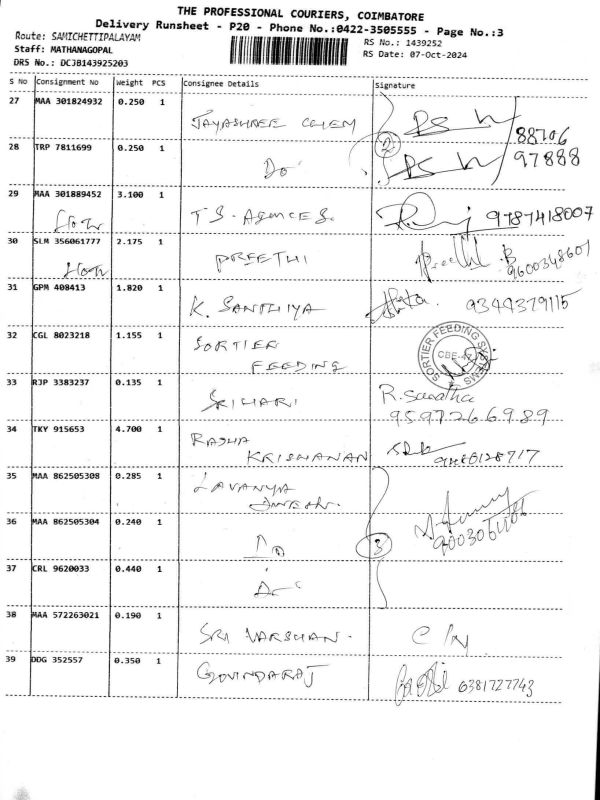 THE PROFESSIONAL COURIERS, COIMBATORE
Delivery Runsheet - P20 - Phone No.:0422-3505555 - Page No.:3
Route: SAMICHETTIPALAYAM
RS No.: 1439252
Staff: MATHANAGOPAL
RS Date: 07-Oct-2024
DRS No.: DCJB143925203
S No Consignment No Weight PCS Consignee Details Signature
27 MAA 301824932 0.250 1
JAYASHREE CHEM
88706
28 TRP 7811699 0.250 1
97888
Do
2
29 MAA 301889452 3.100 1
T S. AGENCES. 9787418007
30 SLM 356061777 2.175 1
PREETHI Preethi. B
9600348607
31 GPM 408413 1.820 1
K. SANTHIYA 9344379115
32 CGL 8023218 1.155 1
SORTIER
FEEDING
SORTIER FEEDING SYSTEMS
CBE-47
33 RJP 3383237 0.135 1
SRIHARI R. Sunatha
9597266989
34 TKY 915653 4.700 1
RADHA
KRISHANAN
35 MAA 862505308 0.285 1
LAVANYA
36 MAA 862505304 0.240 1
Do 3
37 CRL 9620033 0.440 1
Do
38 MAA 572263021 0.190 1
SRI VARSHAN.
39 DDG 352557 0.350 1
GOVINDARAJ 6381727743